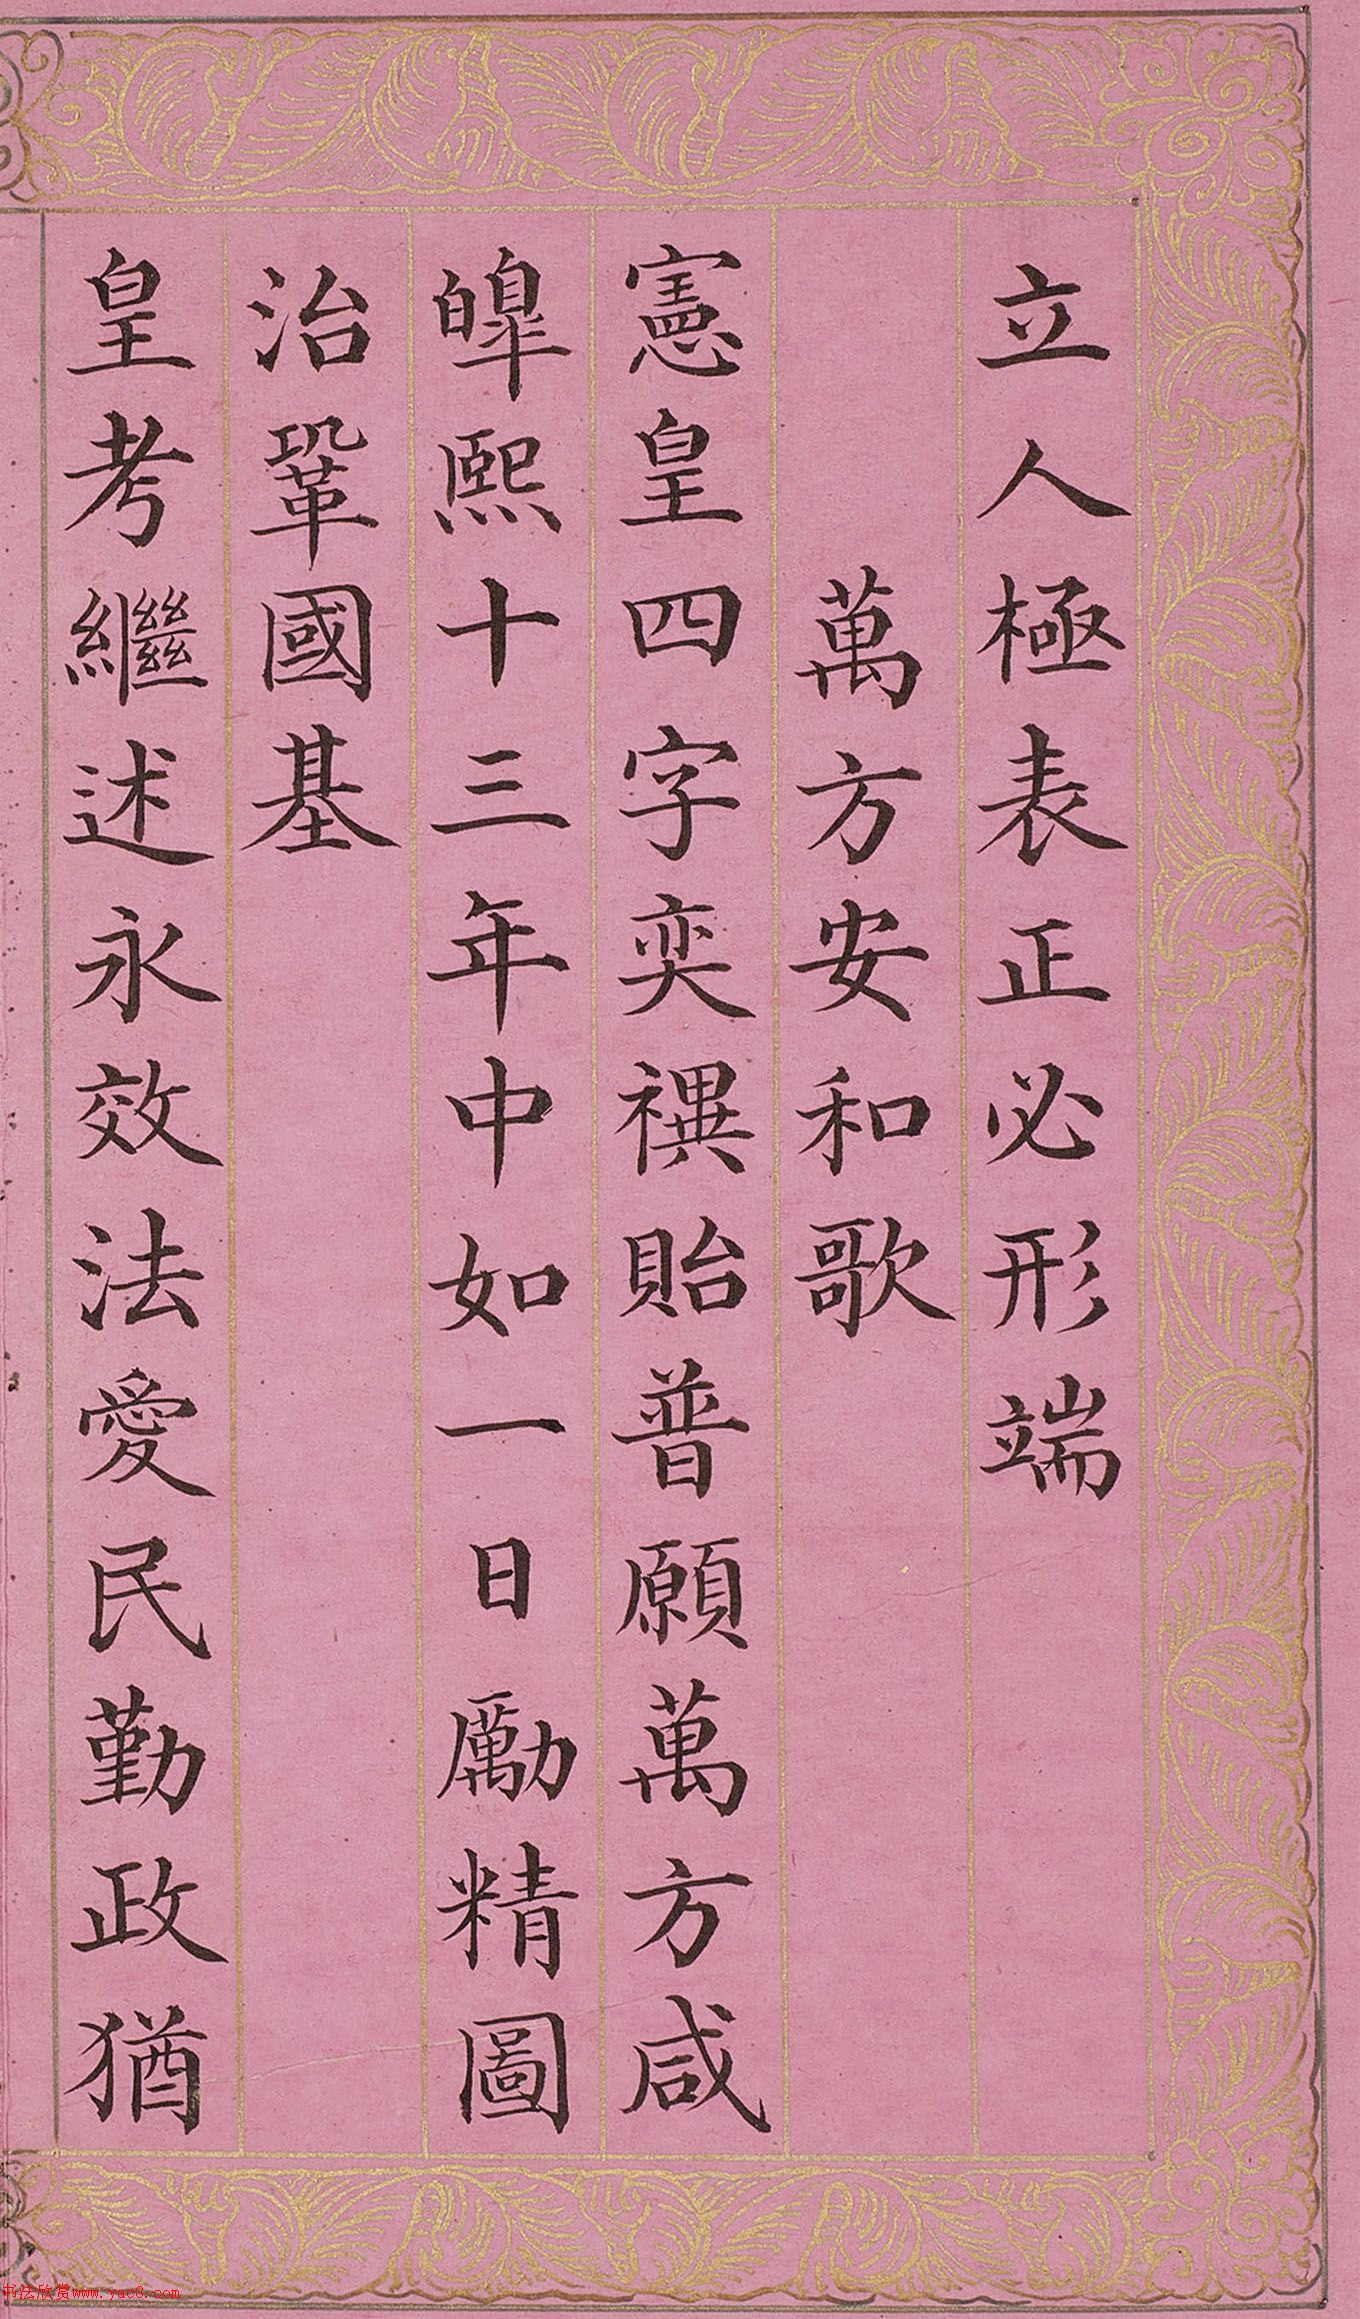 立人極表正必形端
萬方安和歌
憲皇四字奕禩貽普願萬方咸
皥熙十三年中如一日勵精圖
治鞏國基
皇考繼述永效法愛民勤政猶
书法欣赏www.yac8.com